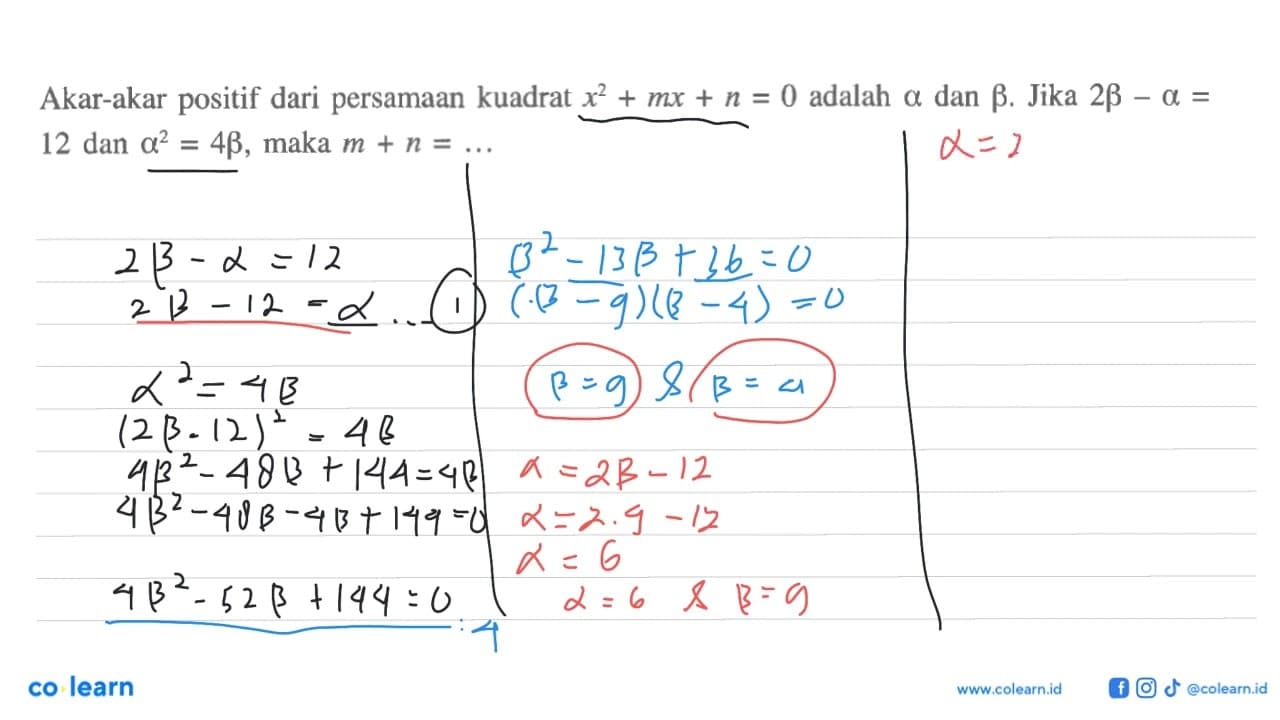 Akar-akar positif dari persamaan kuadrat x² + mx + n = 0 adalah α dan β. Jika 2β – α =
12 dan α² = 4β, maka m + n = ...
2β - α = 12
2β - 12 = α ... 1
α² = 4β
(2β - 12)² = 4β
4β² - 48β + 144 = 4β
4β² - 48β - 4β + 144 = 0
4β² - 52β + 144 = 0
: 4
β² - 13β + 36 = 0
(β - 9)(β - 4) = 0
β = 9 & β = 4
α = 2β - 12
α = 2.9 - 12
α = 6
α = 6 & β = 9
α = 2
co learn
www.colearn.id
@colearn.id